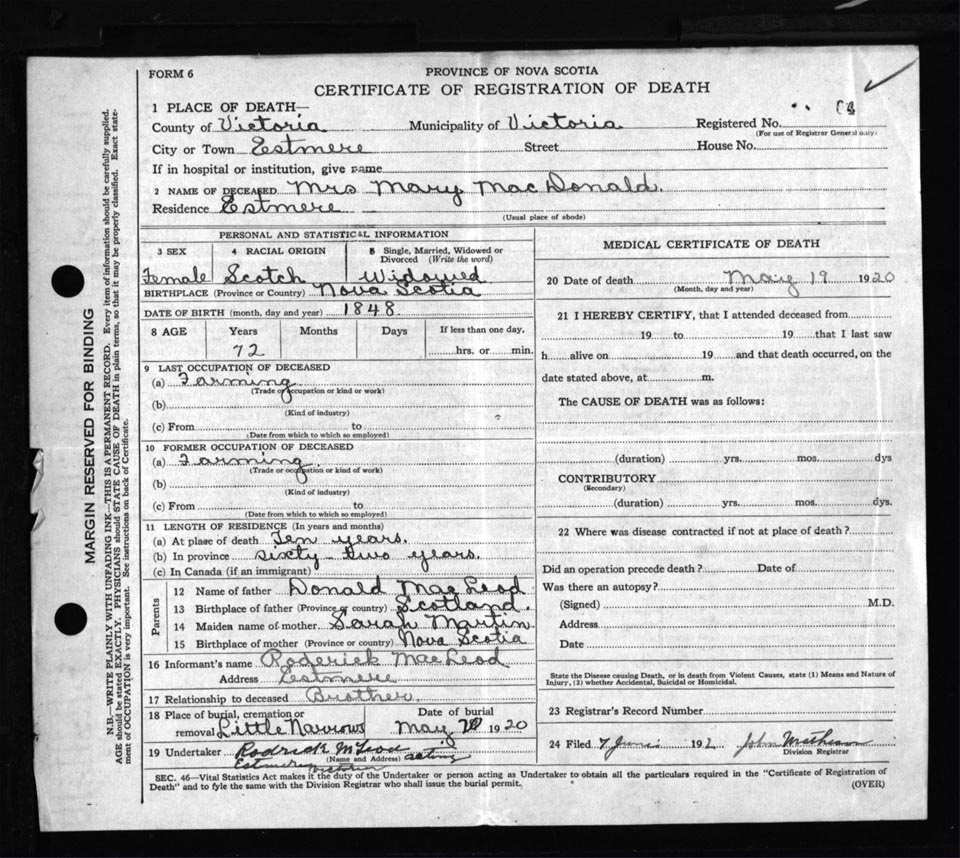 FORM 6
PROVINCE OF NOVA SCOTIA
CERTIFICATE OF REGISTRATION OF DEATH
1 PLACE OF DEATH—
County of Victoria Municipality of Victoria Registered No.
(For use of Registrar General only)
City or Town Estmere Street House No.
If in hospital or institution, give name
2 NAME OF DECEASED Mrs Mary MacDonald.
Residence Estmere
(Usual place of abode)
PERSONAL AND STATISTICAL INFORMATION
3 SEX 4 RACIAL ORIGIN 5 Single, Married, Widowed or Divorced (Write the word)
Female Scotch Widowed
BIRTHPLACE (Province or Country) Nova Scotia
DATE OF BIRTH (month, day and year) 1848.
8 AGE Years Months Days If less than one day,
72 hrs. or min.
9 LAST OCCUPATION OF DECEASED
(a) Farming
(Trade or occupation or kind or work)
(b)
(Kind of industry)
(c) From to
(Date from which to which so employed)
10 FORMER OCCUPATION OF DECEASED
(a) Farming.
(Trade or occupation or kind of work)
(b)
(Kind of industry)
(c) From to
(Date from which to which so employed)
11 LENGTH OF RESIDENCE (In years and months)
(a) At place of death Ten years.
(b) In province sixty two years.
(c) In Canada (if an immigrant)
Parents
12 Name of father Donald MacLeod
13 Birthplace of father (Province or country) Scotland.
14 Maiden name of mother Sarah Martin
15 Birthplace of mother (Province or country) Nova Scotia
16 Informant's name Roderick MacLeod
Address Estmere
17 Relationship to deceased Brother.
18 Place of burial, cremation or Date of burial
removal Little Narrows May 1920
19 Undertaker Rodrick McLeod acting
(Name and Address)
Estmere Victoria
MEDICAL CERTIFICATE OF DEATH
20 Date of death May 19 1920
(Month, day and year)
21 I HEREBY CERTIFY, that I attended deceased from
19 to 19 that I last saw
h alive on 19 and that death occurred, on the
date stated above, at m.
The CAUSE OF DEATH was as follows:
(duration) yrs. mos. dys
CONTRIBUTORY
(Secondary)
(duration) yrs. mos. dys.
22 Where was disease contracted if not at place of death?
Did an operation precede death? Date of
Was there an autopsy?
(Signed) M.D.
Address
Date
State the Disease causing Death, or in death from Violent Causes, state (1) Means and Nature of
Injury, (2) whether Accidental, Suicidal or Homicidal.
23 Registrar's Record Number
24 Filed 7 June 192 John
Division Registrar
SEC. 46—Vital Statistics Act makes it the duty of the Undertaker or person acting as Undertaker to obtain all the particulars required in the "Certificate of Registration of
Death" and to fyle the same with the Division Registrar who shall issue the burial permit. (OVER)
MARGIN RESERVED FOR BINDING
N.B.—WRITE PLAINLY WITH UNFADING INK—THIS IS A PERMANENT RECORD. Every item of information should be carefully supplied.
AGE should be stated EXACTLY. PHYSICIANS should STATE CAUSE OF DEATH in plain terms, so that it may be properly classified. Exact state-
ment of OCCUPATION is very important. See instructions on back of Certificate.